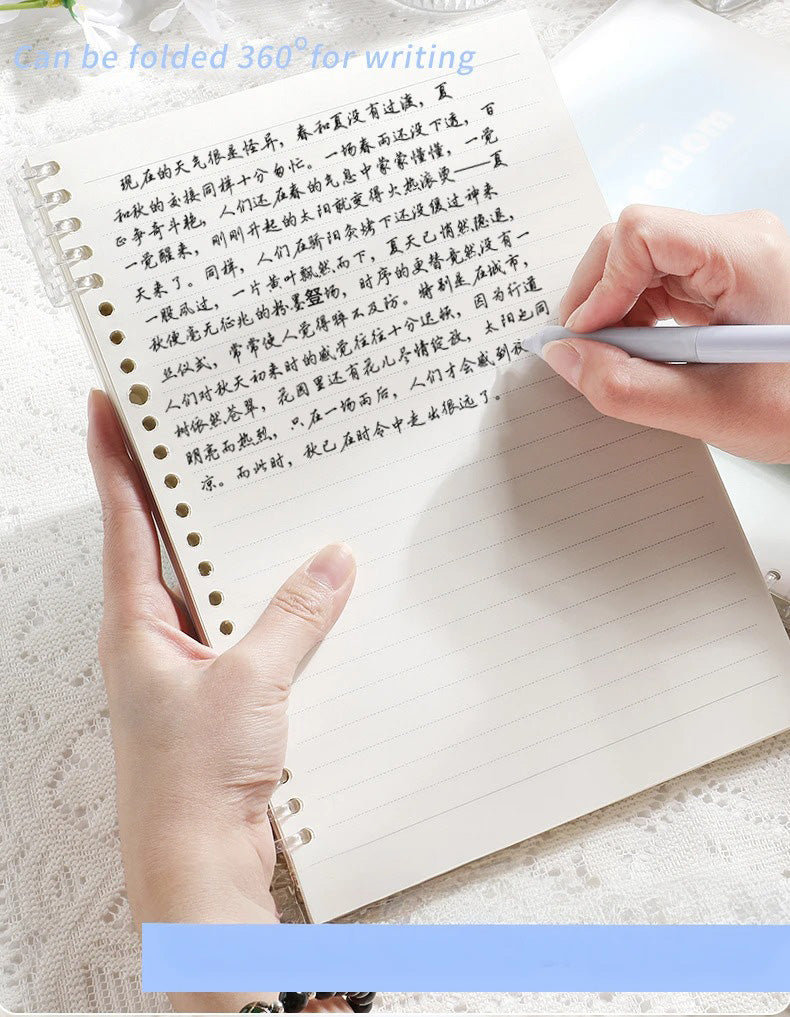 Can be folded 360° for writing
edom
现在的天气很是怪异，春和夏没有过渡，夏
和秋的交接同样十分匆忙。一场春雨还没下透，百
花争奇斗艳，人们还在春的气息中蒙蒙懂懂，一觉
一觉醒来，刚刚升起的太阳就变得火热滚烫——夏
天来了。同样，人们在骄阳炙烤下还没缓过神来
一股风过，一片黄叶飘然而下，夏天已悄然隐退，
秋便毫无征兆的粉墨登场，时序的更替竟然没有一
丝仪式，常常使人觉得猝不及防。特别是在城市，
人们对秋天初来时的感觉往往十分迟顿，因为行道
树依然苍翠，花园里还有花儿尽情绽放，太阳也同
明亮而热烈，只在一场雨后，人们才会感到秋
凉。而此时，秋已在时令中走出很远了。